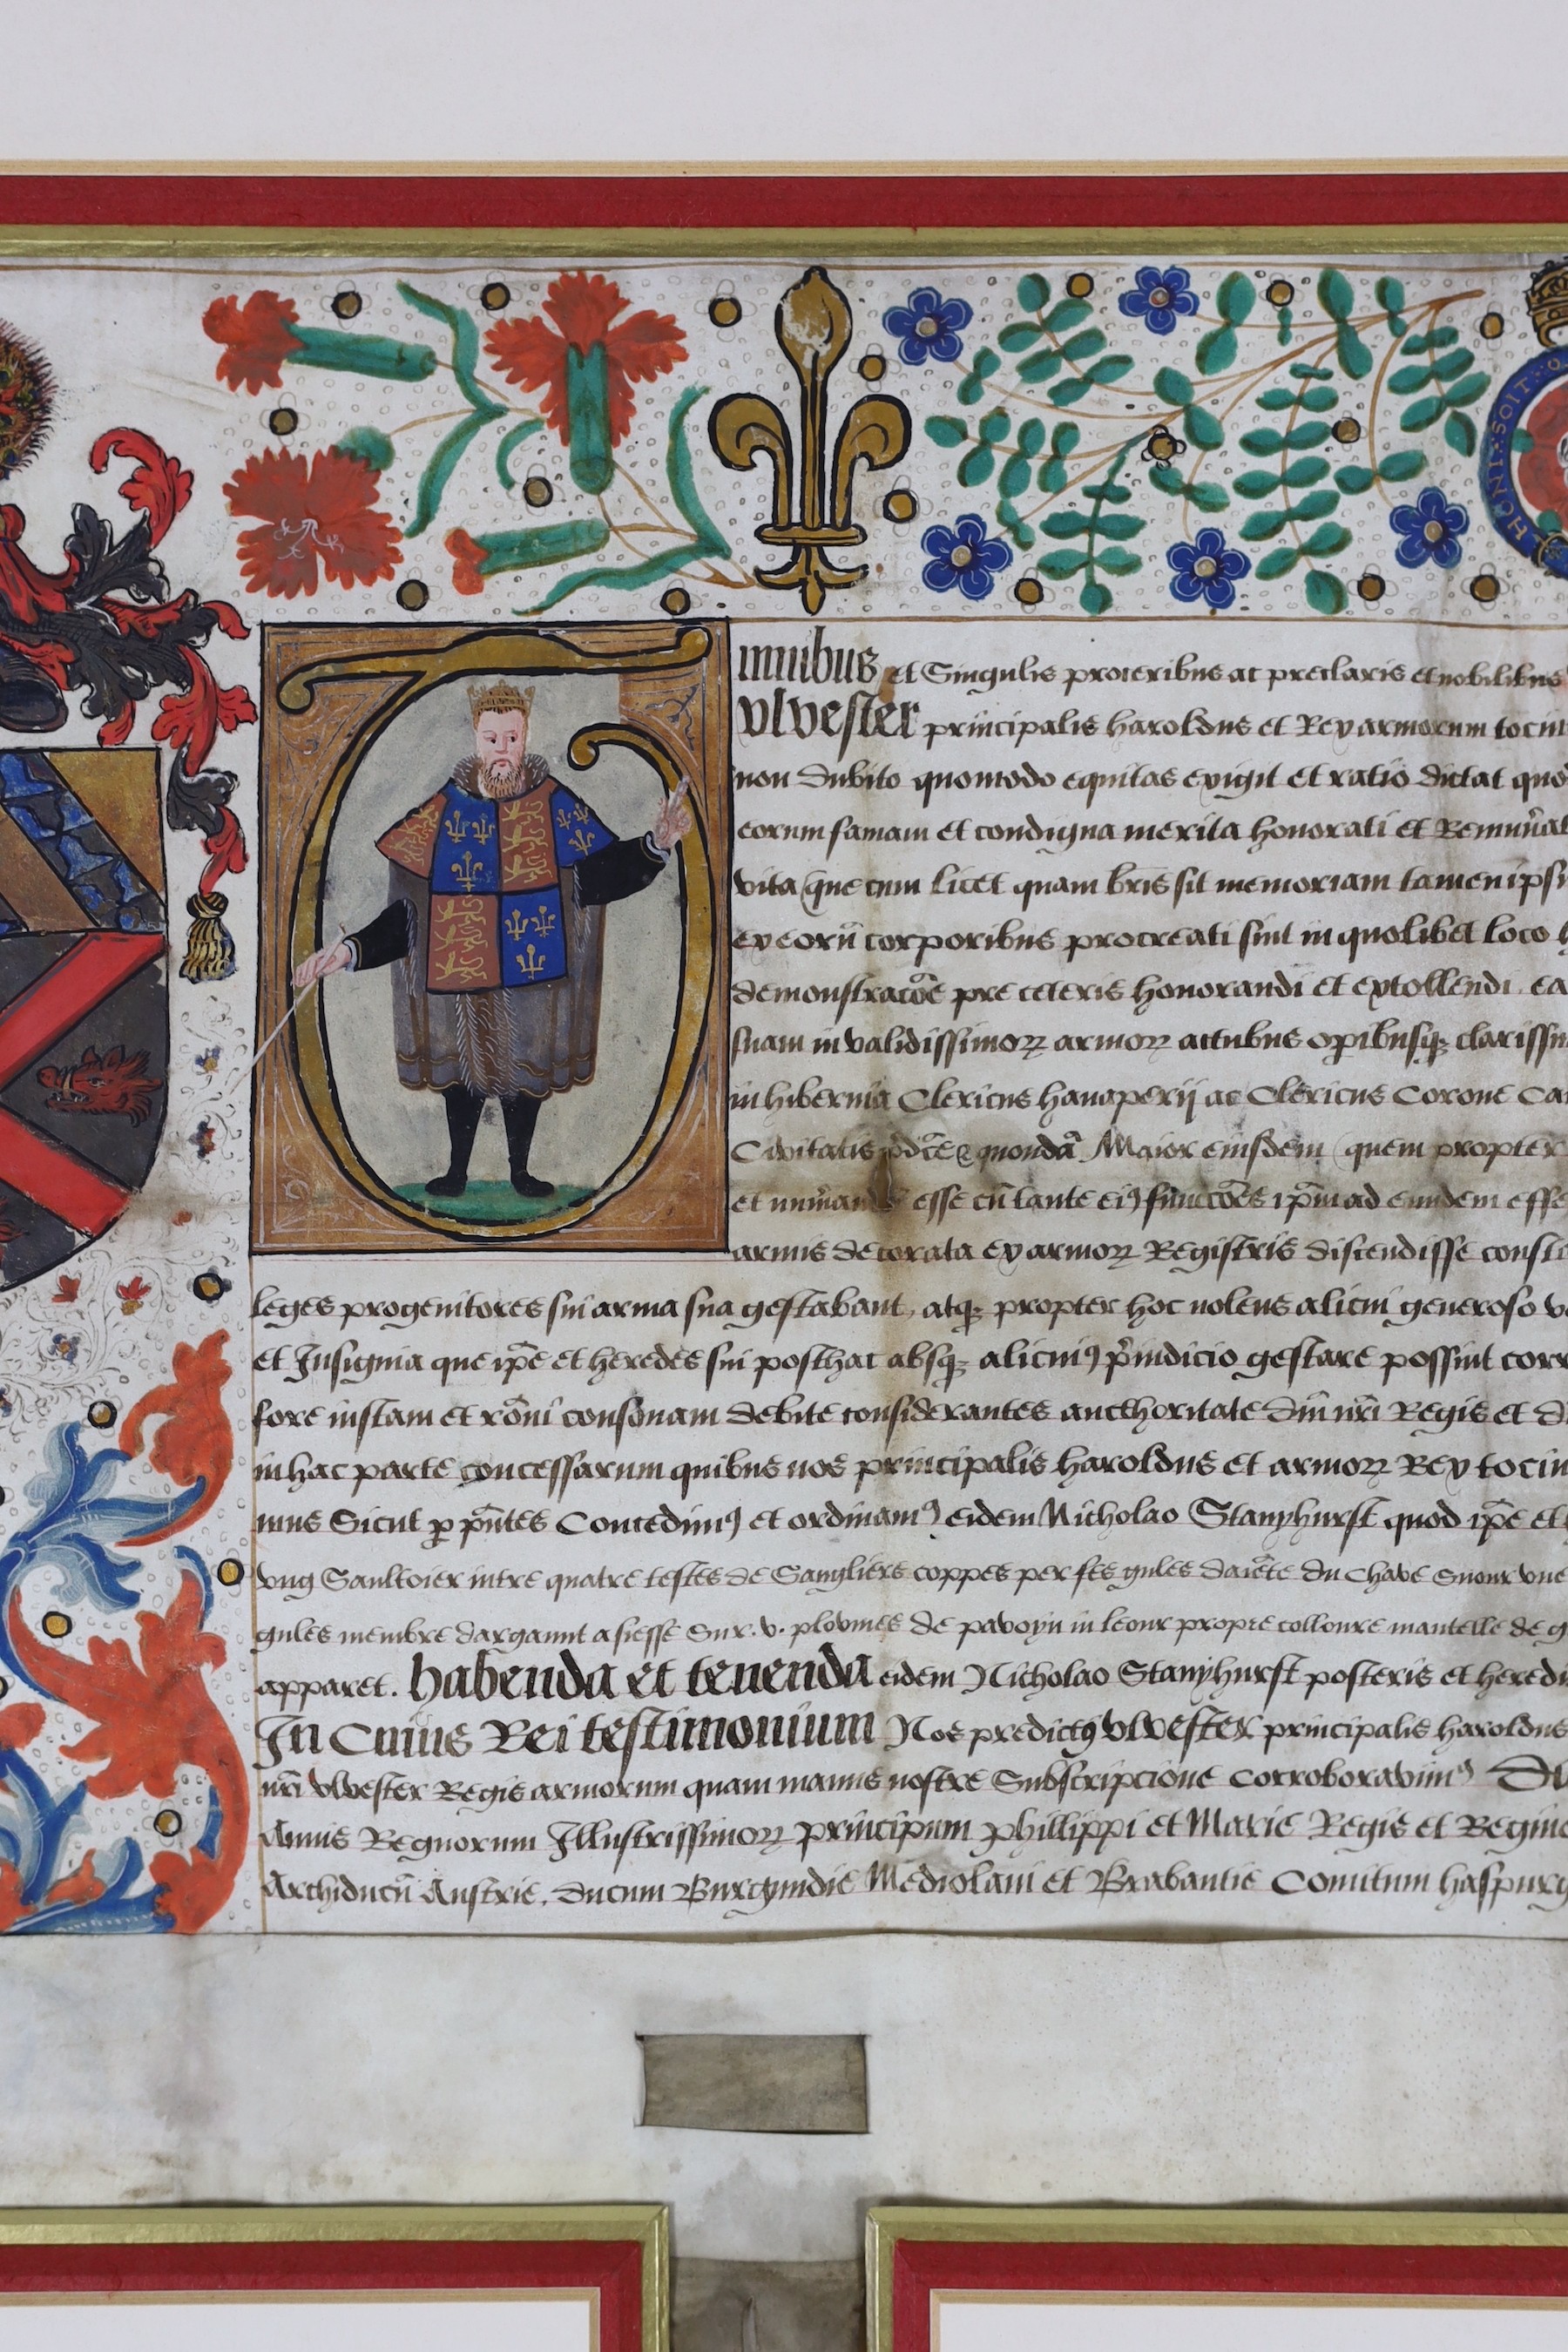 HONI : SOIT : 
Omnibus et Singulis proceribus ac preclaris et nobilibus
Vlvester principalis haroldus et Rex armorum tociu
non dubito quomodo equitas exigit et ratio dictat quod
eorum famam et condigna merita honorati et Remun̄at
vita que cum licet quam bris sit memoriam tamen ipsi
ex eorū corporibus procreati sint in quolibet loco h
demonstracōe pre ceteris honorandi et extollendi ea
suam in validissimoꝝ armoꝝ actubus operibusqꝫ clarissim
in hibernia Clericus hanaperij ac Clericus Corone Can
Civitatis p̄dc̄e quondā Maior eiusdem quem propter
et esse cū tante eiꝰ funccōes ip̄m ad eundem esse
armis decorata ex armoꝝ Registris discendisse const
leges progenitores sui arma sua gestabant, atqꝫ propter hoc nolens alicui generoso v
et Insignia que ip̄e et heredes sui posthac absqꝫ alicuiꝰ p̄iudicio gestare possint corr
fore iustam et rōni consonam debite considerantes aucthoritate dm̄ nr̄i Regis et d
in hac parte concessarum quibus nos principalis haroldus et armoꝝ Rex tociu
mus Sicut ꝑ p̄ntes Concedimꝰ et ordinamꝰ eidem Nicholao Stanyhurst quod ip̄e et
vng Saultoier intre quatre testes de Sangliers coppes per fes gules du Chave Sur vne
gules membre dargaunt asiesse Sur . v . ploumes de pavoyn in leour propre colloure mantelle de g
apparet. habenda et tenenda eidem Nicholao Stanyhurst posteris et heredi
In Cuius Rei testimonium Nos predictꝰ Vlvester principalis haroldus
nr̄i Vlvester Regis armorum quam manus nostre Subscripcione corroboravimꝰ D
Annis Regnorum Illustrissimoꝝ principum phillippi et Marie Regis et Regine
Archiducū Austrie, ducum Burgundie Mediolani et Brabantie Comitum haspurg